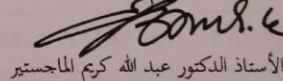 الأستاذ الدكتور عبد الله كريم الماجستير